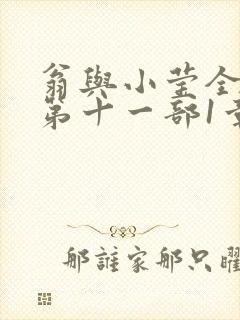 翁與小莹全
第十一部1章
那誰家那只曜